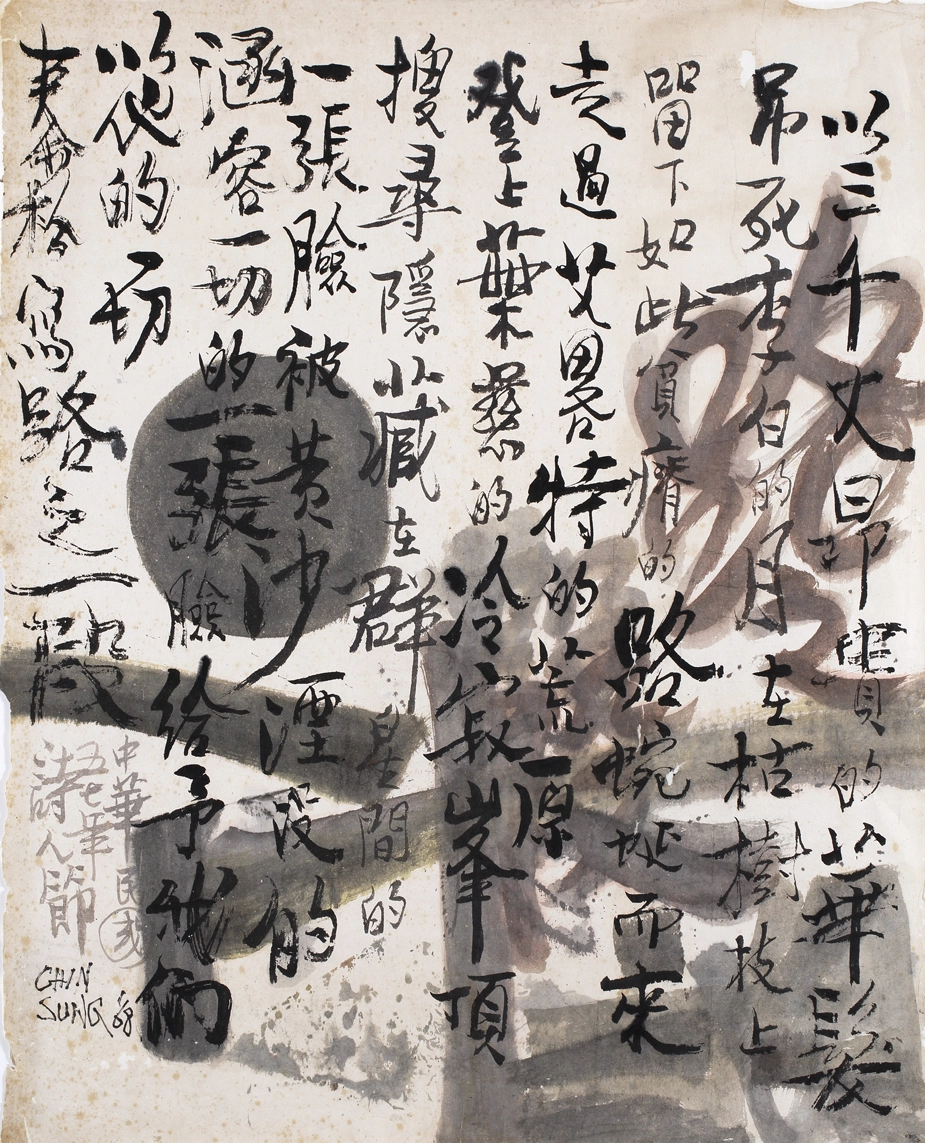 以三千丈昂貴的華髮
吊死李白的月在枯樹枝上
留下如此貧瘠的路蜿蜒而來
走過艾略特的荒原
登上葉慈的冷寂峯頂
搜尋隱藏在群星間的
一張臉被黄沙湮沒的
涵容一切的一張臉給予我們
以他的切
秦松寫路之一段
中華民國
五七年
詩人節
CHIN
SUNG 68